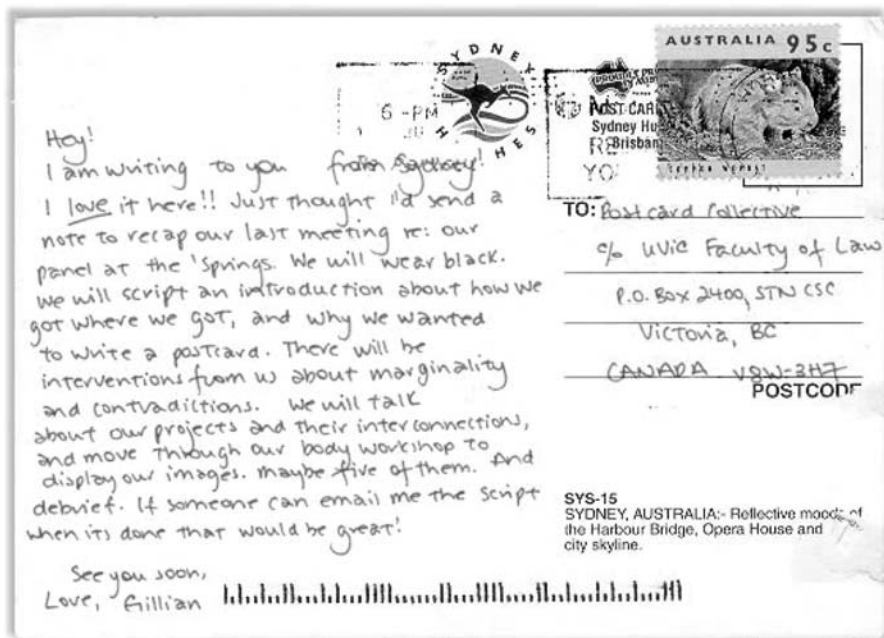 Hey!
I am writing to you from Sydney!
I love it here!! Just thought I'd send a
note to recap our last meeting re: our
panel at the 'Springs. We will wear black.
We will script an introduction about how we
got where we got, and why we wanted
to write a postcard. There will be
interventions from us about marginality
and contradictions. We will talk
about our projects and their interconnections,
and move through our body workshop to
display our images. maybe five of them. And
debrief. If someone can email me the script
when its done that would be great!
See you soon,
Love, Gillian
SYDNEY
6-PM
AUSTRALIA 95c
POST CARD
Sydney
Brisban
TO: Postcard Collective
c/o UVic Faculty of Law
P.O. Box 2400, STN CSC
Victoria, BC
CANADA V8W-3H7
POSTCODE
SYS-15
SYDNEY, AUSTRALIA:- Reflective moods of
the Harbour Bridge, Opera House and
city skyline.